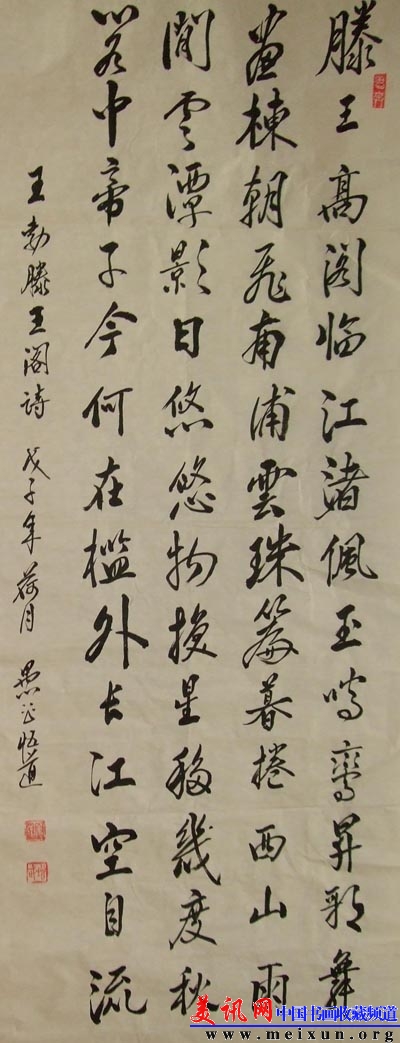 滕王高阁临江渚佩玉鸣鸾罢歌舞
畫棟朝飛南浦雲珠簾暮捲西山雨
閒雲潭影日悠悠物換星移幾度秋
阁中帝子今何在檻外长江空自流
王勃滕王阁詩 戊子年荷月 愚公悟道
美讯网 中国书画收藏频道
www.meixun.org